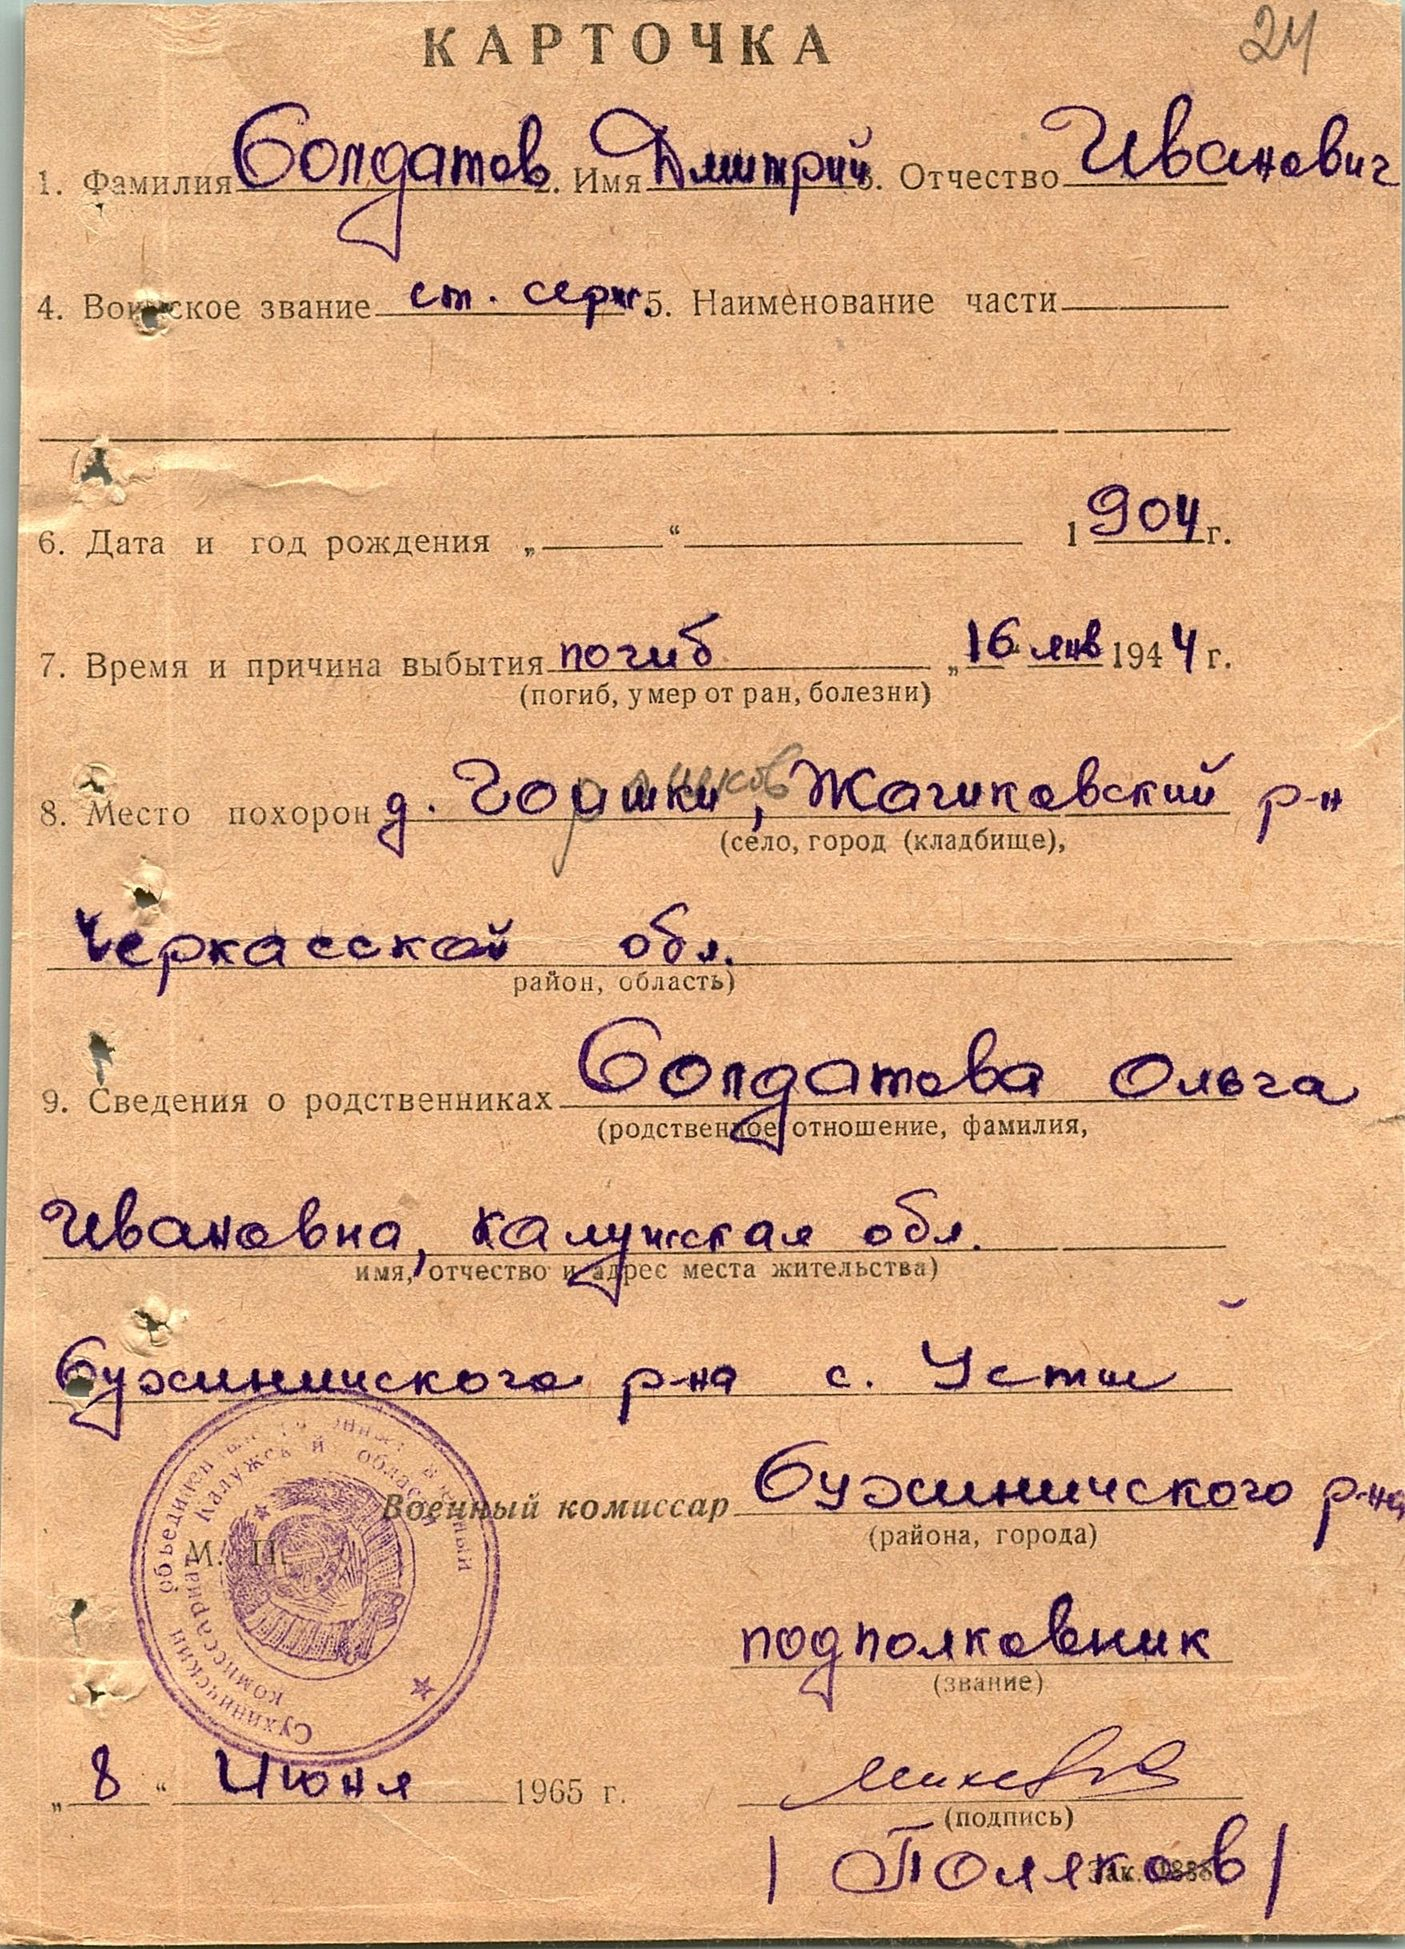 24
КАРТОЧКА
1. Фамилия Солдатов 2. Имя Дмитрий 3. Отчество Иванович
4. Воинское звание ст. серж. 5. Наименование части
6. Дата и год рождения „ “ 1904 г.
7. Время и причина выбытия погиб „16 янв 1944 г.
(погиб, умер от ран, болезни)
8. Место похорон д. , Жашковский р-н
(село, город (кладбище),
Черкасской обл.
район, область)
9. Сведения о родственниках Солдатова Ольга
(родственное отношение, фамилия,
Ивановна, Калужская обл.
имя, отчество и адрес места жительства)
Сухиничского р-на с.
Военный комиссар Сухиничского р-на
(района, города)
М. П.
Сухиничский объединенный военный
комиссариат Калужской области
подполковник
(звание)
„8“ Июня 1965 г.
(подпись)
/Поляков/
Зак.